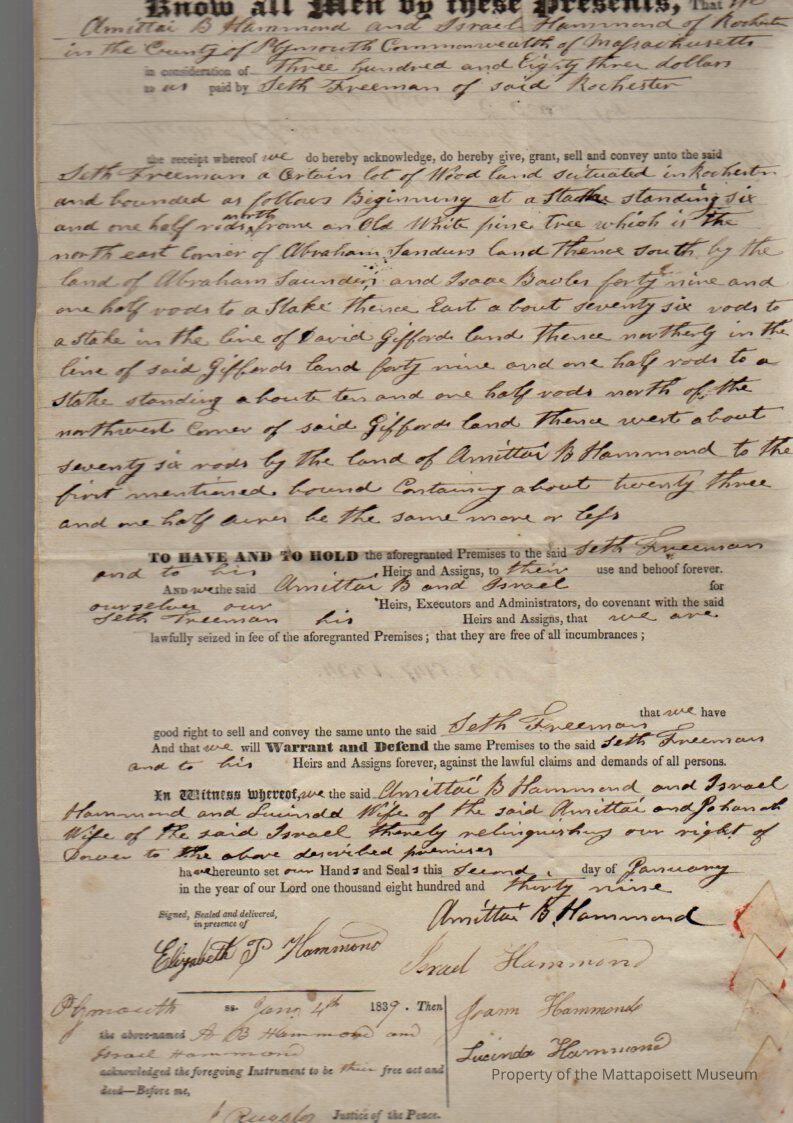 Know all Men by these Presents, That We
Amittai B Hammond and Israel Hammond of Rochester
in the County of Plymouth Commonwealth of Massachusetts
in consideration of Three hundred and Eighty three dollars
to us paid by Seth Freeman of said Rochester
the receipt whereof we do hereby acknowledge, do hereby give, grant, sell and convey unto the said
Seth Freeman a Certin lot of Wood land scituated in Rochester
and bounded as follows Beginning at a Stake standing six
and one half rods north from an Old White pine tree which is the
north east Corner of Abraham Sanders land thence south by the
land of Abraham Saunders and Isaac Bowles forty nine and
one half rods to a Stake thence East about seventy six rods to
a stake in the line of David Giffords land thence northerly in the
line of said Giffords land forty nine and one half rods to a
Stake standing aboute ten and one half rods north of the
northwest Corner of said Giffords land thence west about
seventy six rods by the land of Amittai B Hammond to the
first mentioned bound Containing about twenty three
and one half acres be the same more or less
TO HAVE AND TO HOLD the aforegranted Premises to the said Seth Freeman
and to his Heirs and Assigns, to their use and behoof forever.
AND we the said Amittai B and Israel for
ourselves our Heirs, Executors and Administrators, do covenant with the said
Seth Freeman his Heirs and Assigns, that we are
lawfully seized in fee of the aforegranted Premises; that they are free of all incumbrances;
that we have
good right to sell and convey the same unto the said Seth Freeman
And that we will Warrant and Defend the same Premises to the said Seth Freeman
and to his Heirs and Assigns forever, against the lawful claims and demands of all persons.
In Witness whereof, we the said Amittai B Hammond and Israel
Hammond and Lucinda Wife of the said Amittai and Johanah
Wife of the said Israel thereby relinquishing our right of
Dower to the above described premises
have hereunto set our Hands and Seals this second day of January
in the year of our Lord one thousand eight hundred and thirty nine
Signed, Sealed and delivered,
in presence of
Amittai B. Hammond
Elizabeth P Hammond
Israel Hammond
Plymouth ss. Jany 4th 1839. Then
Joann Hammond
the above-named A B Hammond and
Israel Hammond
Lucinda Hammond
acknowledged the foregoing Instrument to be their free act and
deed—Before me,
Justice of the Peace.
Property of the Mattapoisett Museum